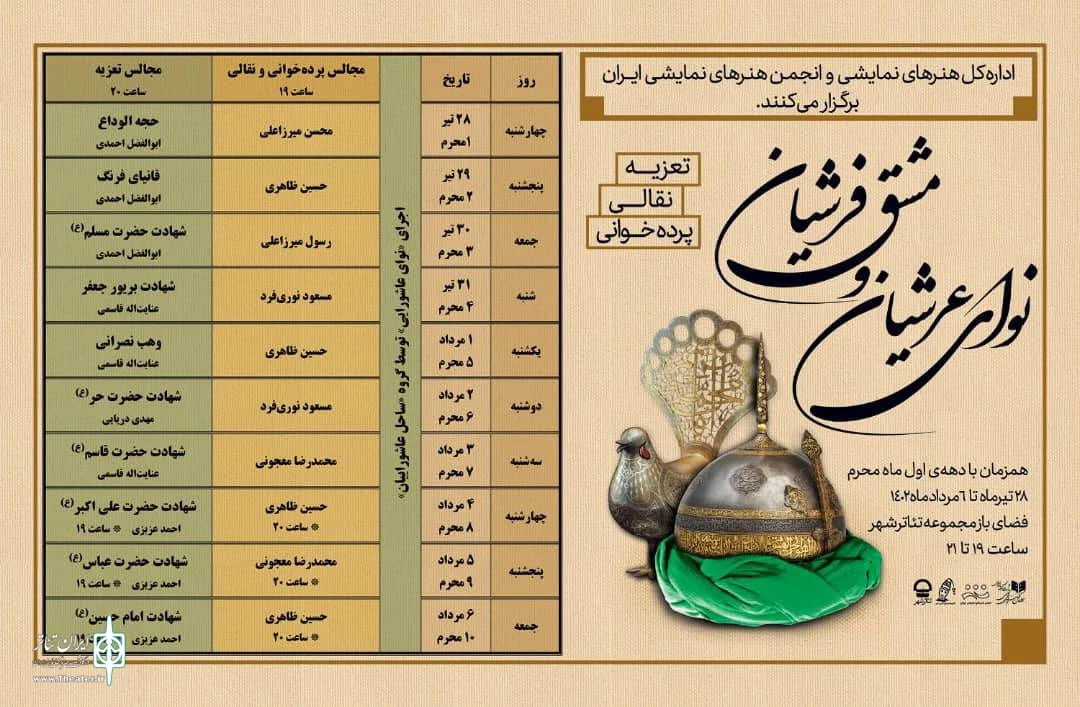 اداره‌کل هنرهای نمایشی و انجمن هنرهای نمایشی ایران
برگزار می‌کنند.
مشق فرشیان
و
نوای عرشیان
تعزیــه
نقالــی
پرده‌خوانی
همزمان با دهه‌ی اول ماه محرم
۲۸ تیرماه تا ۶ مردادماه ۱۴۰۲
فضای باز مجموعه تئاترشهر
ساعت ۱۹ تا ۲۱
روز تاریخ مجالس پرده‌خوانی و نقالی مجالس تعزیه
ساعت ۱۹ ساعت ۲۰
اجرای «نوای عاشورایی» توسط گروه «ساحل عاشوراییان»
چهارشنبه ۲۸ تیر محسن میرزاعلی حجه الوداع
۱محرم ابوالفضل احمدی
پنجشنبه ۲۹ تیر حسین طاهری قانیای فرنگ
۲ محرم ابوالفضل احمدی
جمعه ۳۰ تیر رسول میرزاعلی شهادت حضرت مسلم(ع)
۳ محرم ابوالفضل احمدی
شنبه ۳۱ تیر مسعود نوری‌فرد شهادت بریور جعفر
۴ محرم عنایت‌اله قاسمی
یکشنبه ۱ مرداد حسین طاهری وهب نصرانی
۵ محرم عنایت‌اله قاسمی
دوشنبه ۲ مرداد مسعود نوری‌فرد شهادت حضرت حر(ع)
۶ محرم مهدی دریایی
سه‌شنبه ۳ مرداد محمدرضا معجونی شهادت حضرت قاسم(ع)
۷ محرم عنایت‌اله قاسمی
چهارشنبه ۴ مرداد حسین طاهری شهادت حضرت علی اکبر(ع)
۸ محرم * ساعت ۲۰ احمد عزیزی * ساعت ۱۹
پنجشنبه ۵ مرداد محمدرضا معجونی شهادت حضرت عباس(ع)
۹ محرم * ساعت ۲۰ احمد عزیزی * ساعت ۱۹
جمعه ۶ مرداد حسین طاهری شهادت امام حسین(ع)
۱۰ محرم * ساعت ۲۰ احمد عزیزی ۱۹
ایران تئاتر
www.Theater.ir